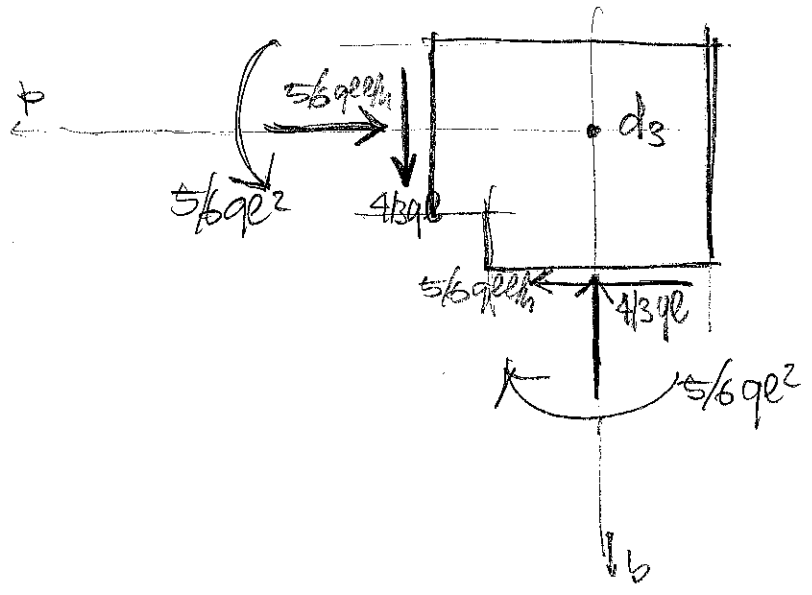 p
5/6 qll/h
d3
5/6 ql²
4/3 ql
5/6 qll/h
4/3 ql
5/6 ql²
b